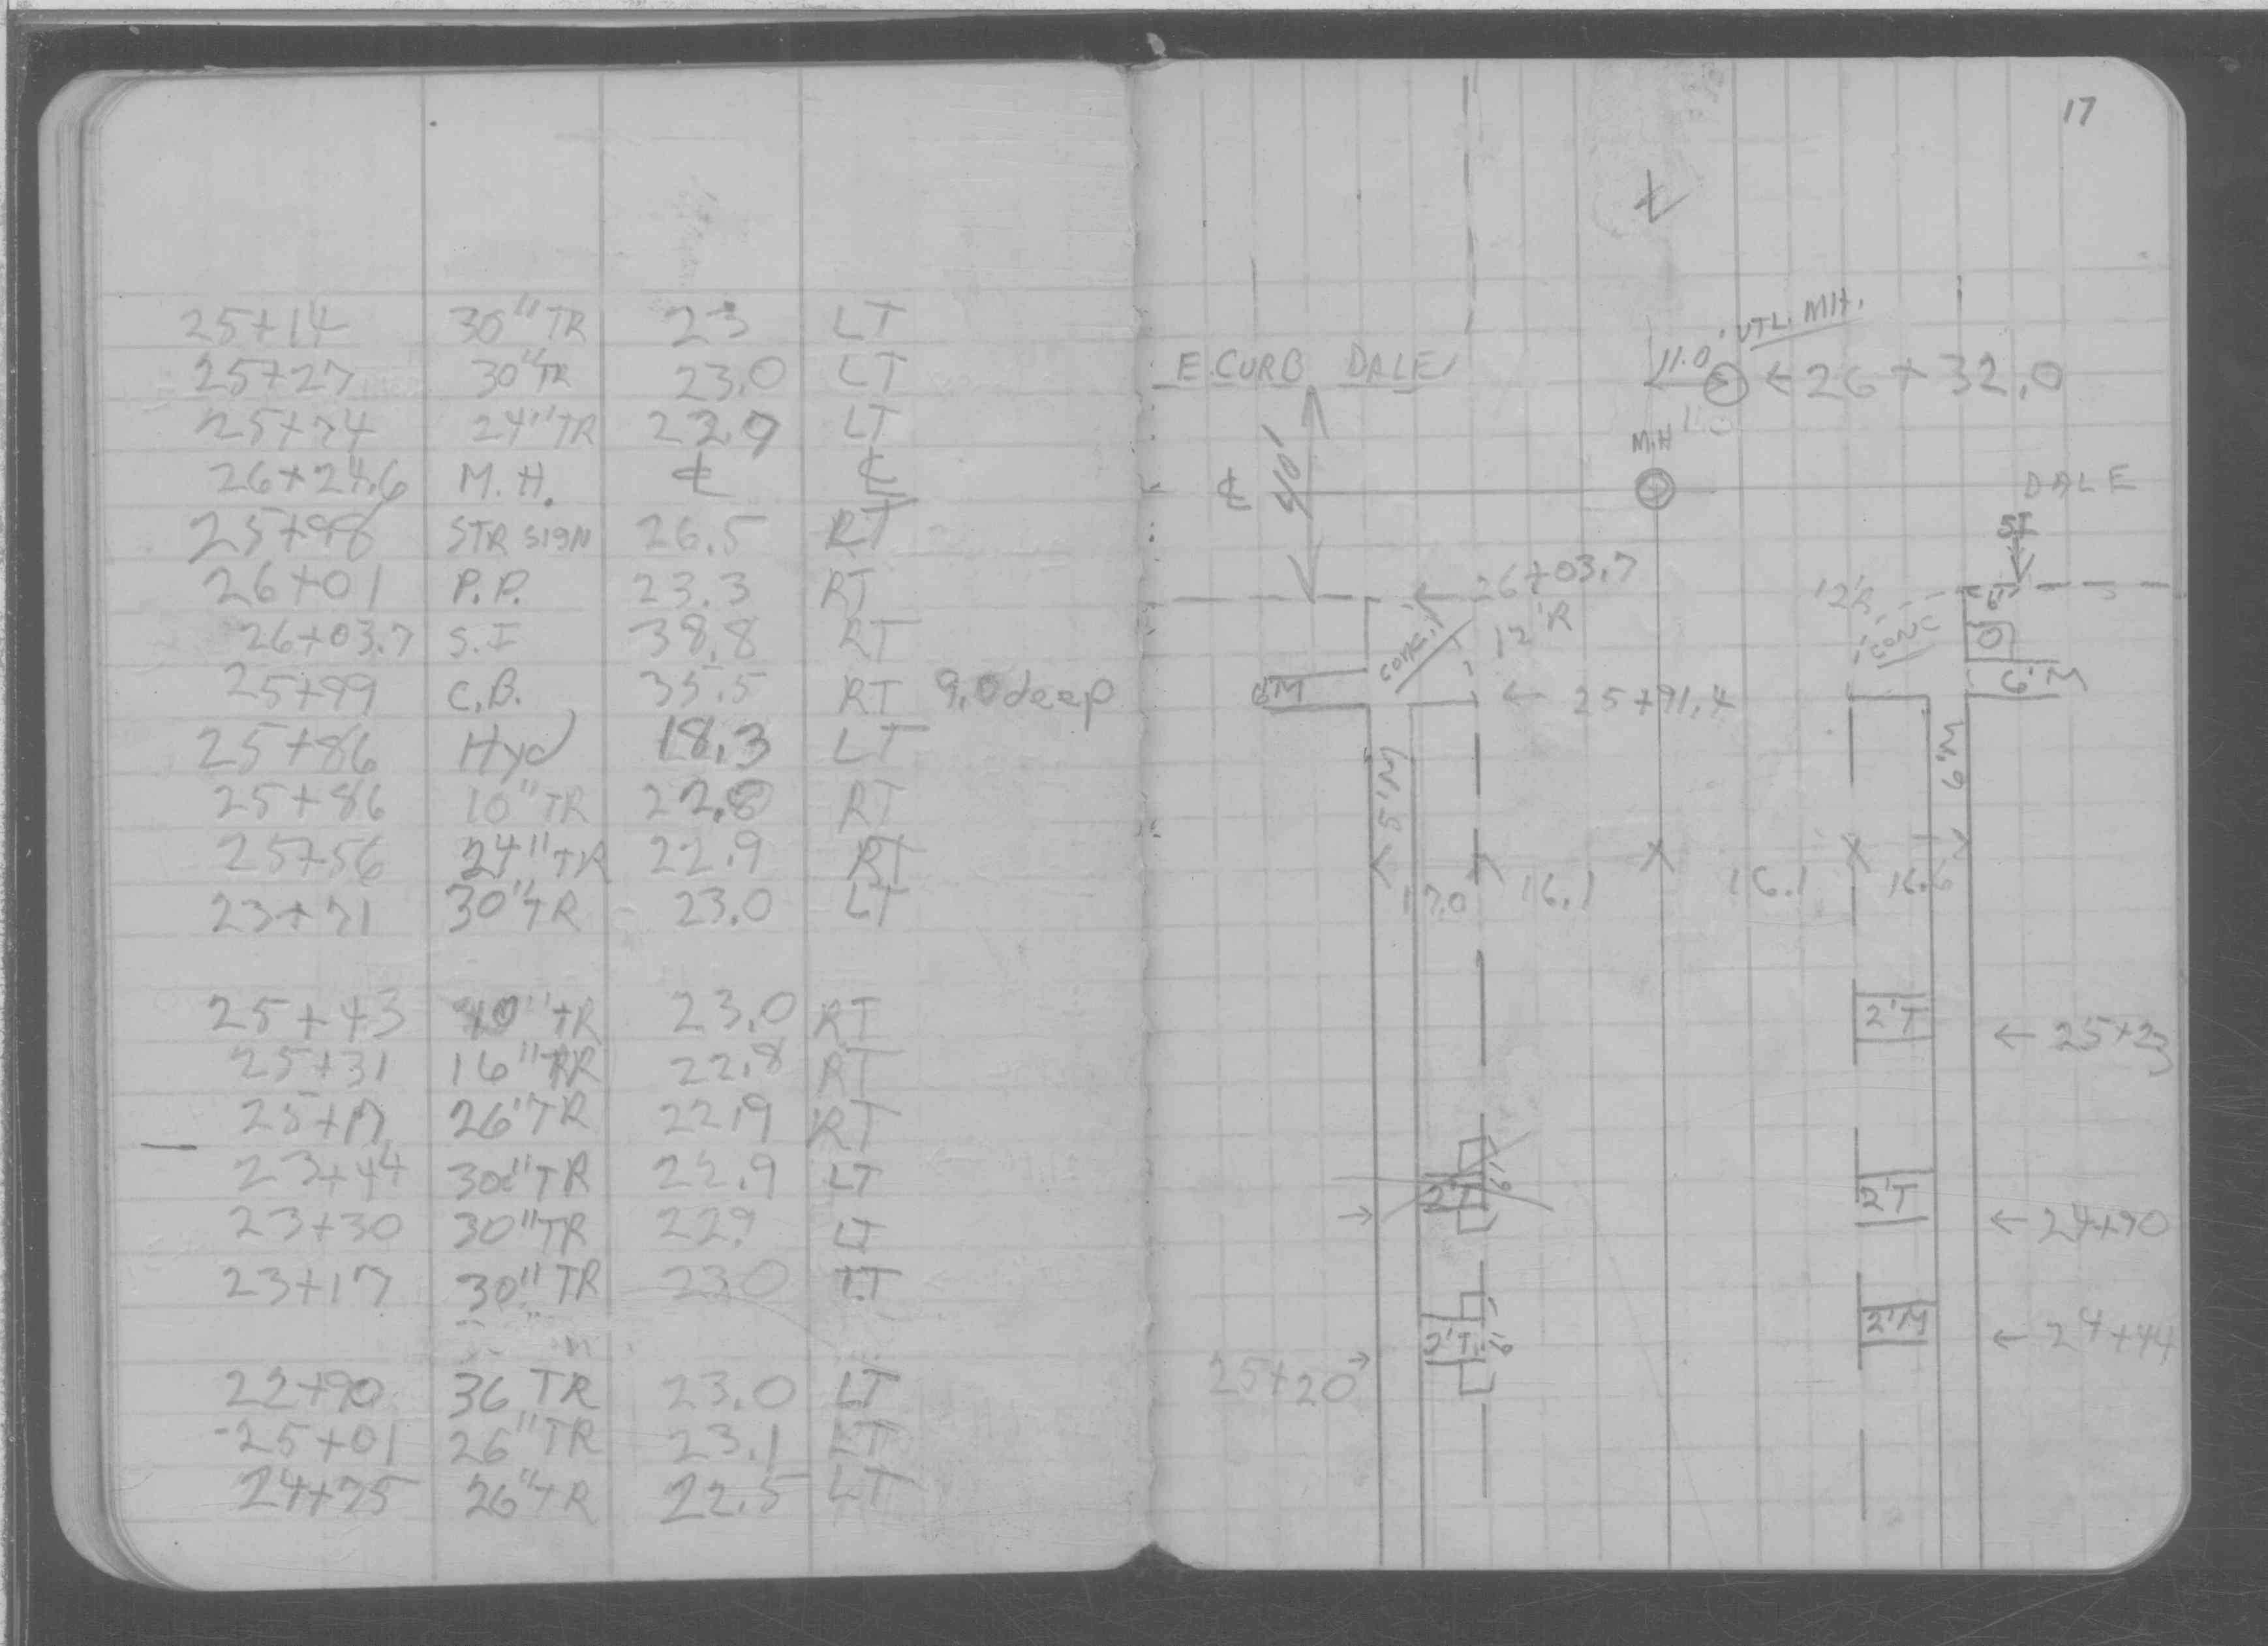 25+14 30" TR 23 LT
25+27 30" TR 23.0 LT
25+74 24" TR 22.9 LT
26+24.6 M.H. ℄ ℄
25+98 STR SIGN 26.5 RT
26+01 P.P. 23.3 RT
26+03.7 S.I 38.8 RT
25+99 C.B. 35.5 RT 9.0 deep
25+86 Hyd 18.3 LT
25+86 10" TR 22.8 RT
25+56 24" TR 22.9 RT
23+71 30" TR 23.0 LT
25+43 40" TR 23.0 RT
25+31 16" TR 22.8 RT
25+17 26" TR 22.9 RT
23+44 30" TR 22.9 LT
23+30 30" TR 22.9 LT
23+17 30" TR 23.0 LT
22+90 36 TR 23.0 LT
25+01 26" TR 23.1 LT
24+75 26" TR 22.5 LT
17
℄
11.0' UTL. M.H.
E. CURB DALE
← 26+32.0
M.H
℄ 40'
DALE
SI
26+03.7
12'R
12'R
CONC.
CONC
6'
6'M
← 25+91.4
6'M
5'M
6'M
17.0 16.1 16.1 16.6
2'T ← 25+23
2'T 6'
2'T ← 24+90
2'T 6'
2'M ← 24+44
25+20 →